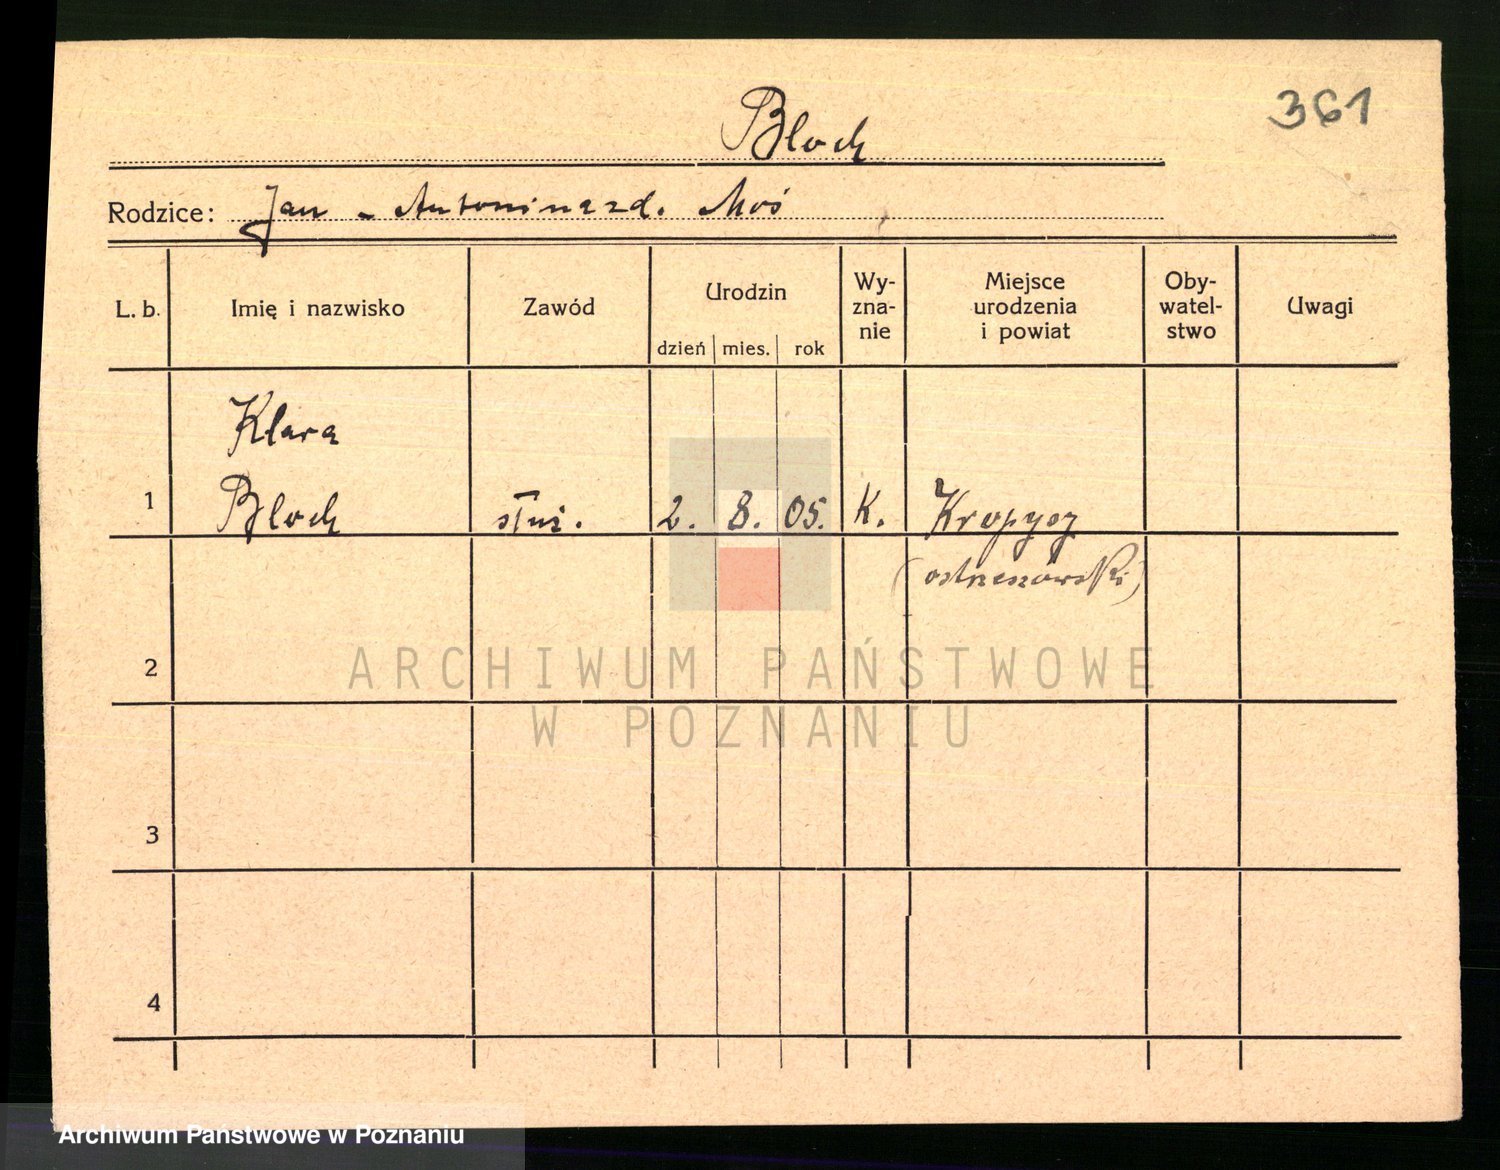 361
Bloch
Rodzice: Jan - Antonina zd. Moś
L. b.
Imię i nazwisko
Zawód
Urodzin
dzień mies. rok
Wy-
zna-
nie
Miejsce
urodzenia
i powiat
Oby-
watel-
stwo
Uwagi
Klara
1 Bloch służ. 2. 8. 05. K.
2
3
4
ARCHIWUM PAŃSTWOWE
W POZNANIU
Archiwum Państwowe w Poznaniu